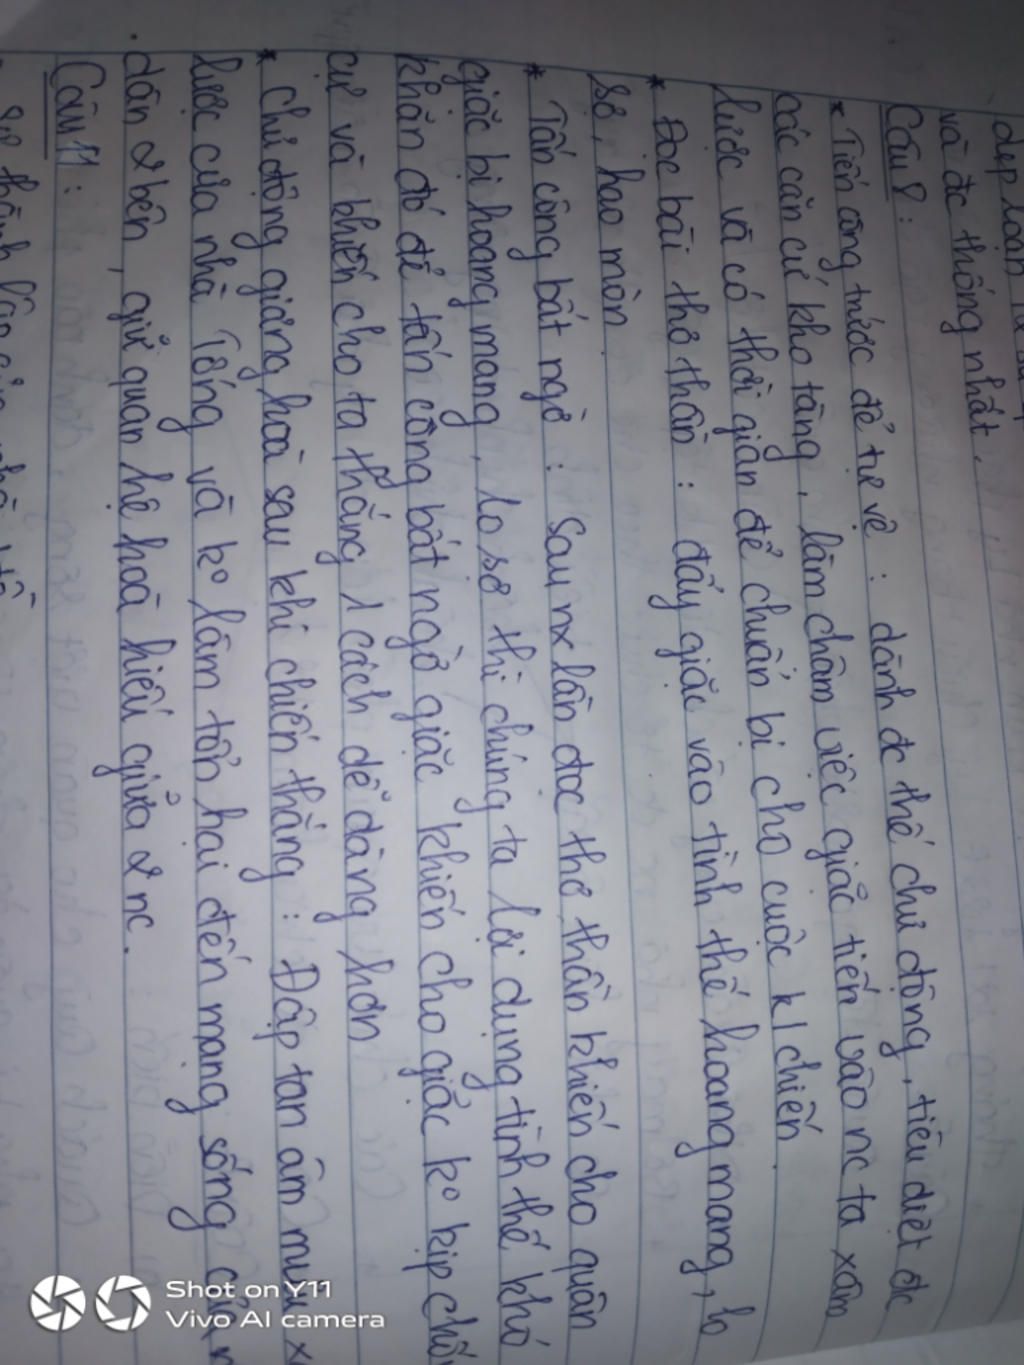 dẹp loạn
và đc thống nhất.
Câu 8:
* Tiến công trước để tự vệ: dành đc thế chủ động, tiêu diệt đc
các căn cứ kho tàng, làm chậm việc giặc tiến vào nc ta xâm
lược và có thời gian để chuẩn bị cho cuộc k/chiến.
* Đọc bài thơ thần: đẩy giặc vào tình thế hoang mang, lo
sợ, hao mòn
* Tấn công bất ngờ: Sau nx lần đọc thơ thần khiến cho quân
giặc bị hoang mang, lo sợ thì chúng ta lợi dụng tình thế khó
khăn đó để tấn công bất ngờ giặc khiến cho giặc ko kịp
cự và khiến cho ta thắng 1 cách dễ dàng hơn
* Chủ động giảng hoà sau khi chiến thắng: Đập tan âm mưu x
lược của nhà Tống và ko làm tổn hại đến mạng sống của
dân 2 bên, giữ quan hệ hoà hiếu giữa 2 nc.
Câu 11:
thành lập của nhà
Shot on Y11
Vivo AI camera